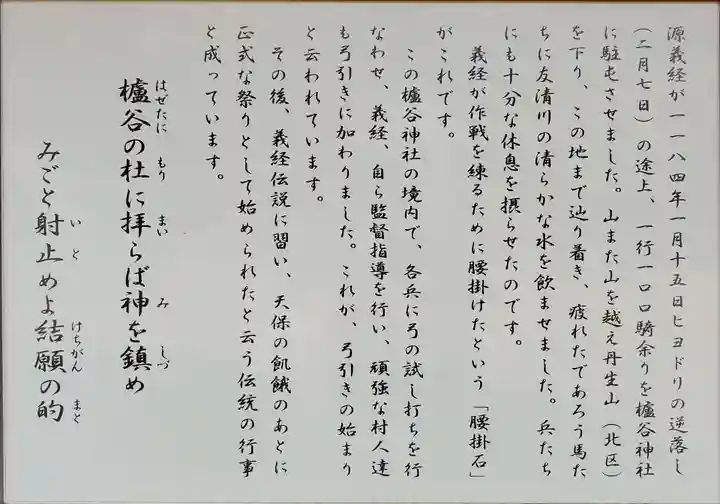 源義経が一一八四年一月十五日ヒヨドリの逆落し
(二月七日)の途上、一行一〇〇騎余りを櫨谷神社
に駐屯させました。山また山を越え丹生山(北区)
を下り、この地まで辿り着き、疲れたであろう馬た
ちに友清川の清らかな水を飲ませました。兵たち
にも十分な休息を摂らせたのです。
義経が作戦を練るために腰掛けたという「腰掛石」
がこれです。
この櫨谷神社の境内で、各兵に弓の試し打ちを行
なわせ、義経、自ら監督指導を行い、頑強な村人達
も弓引きに加わりました。これが、弓引きの始まり
と云われています。
その後、義経伝説に習い、天保の飢餓のあとに
正式な祭りとして始められたと云う伝統の行事
と成っています。
櫨谷の杜に拝らば神を鎮め
はぜたに もり まい み しづ
みごと射止めよ結願の的
いと けちがん まと